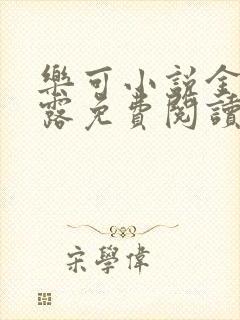 樂可小說金
露免費閱讀
宋學偉